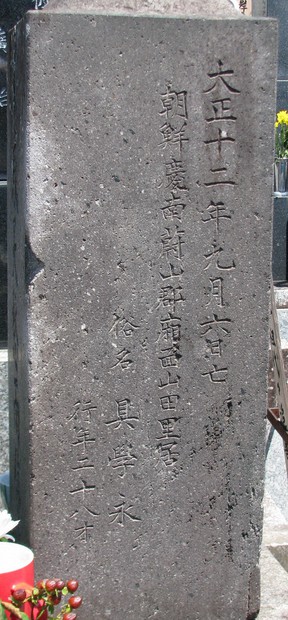 大正十二年九月六日亡
朝鮮慶南蔚山郡廂面山田里居
俗名 具學永
行年二十八才